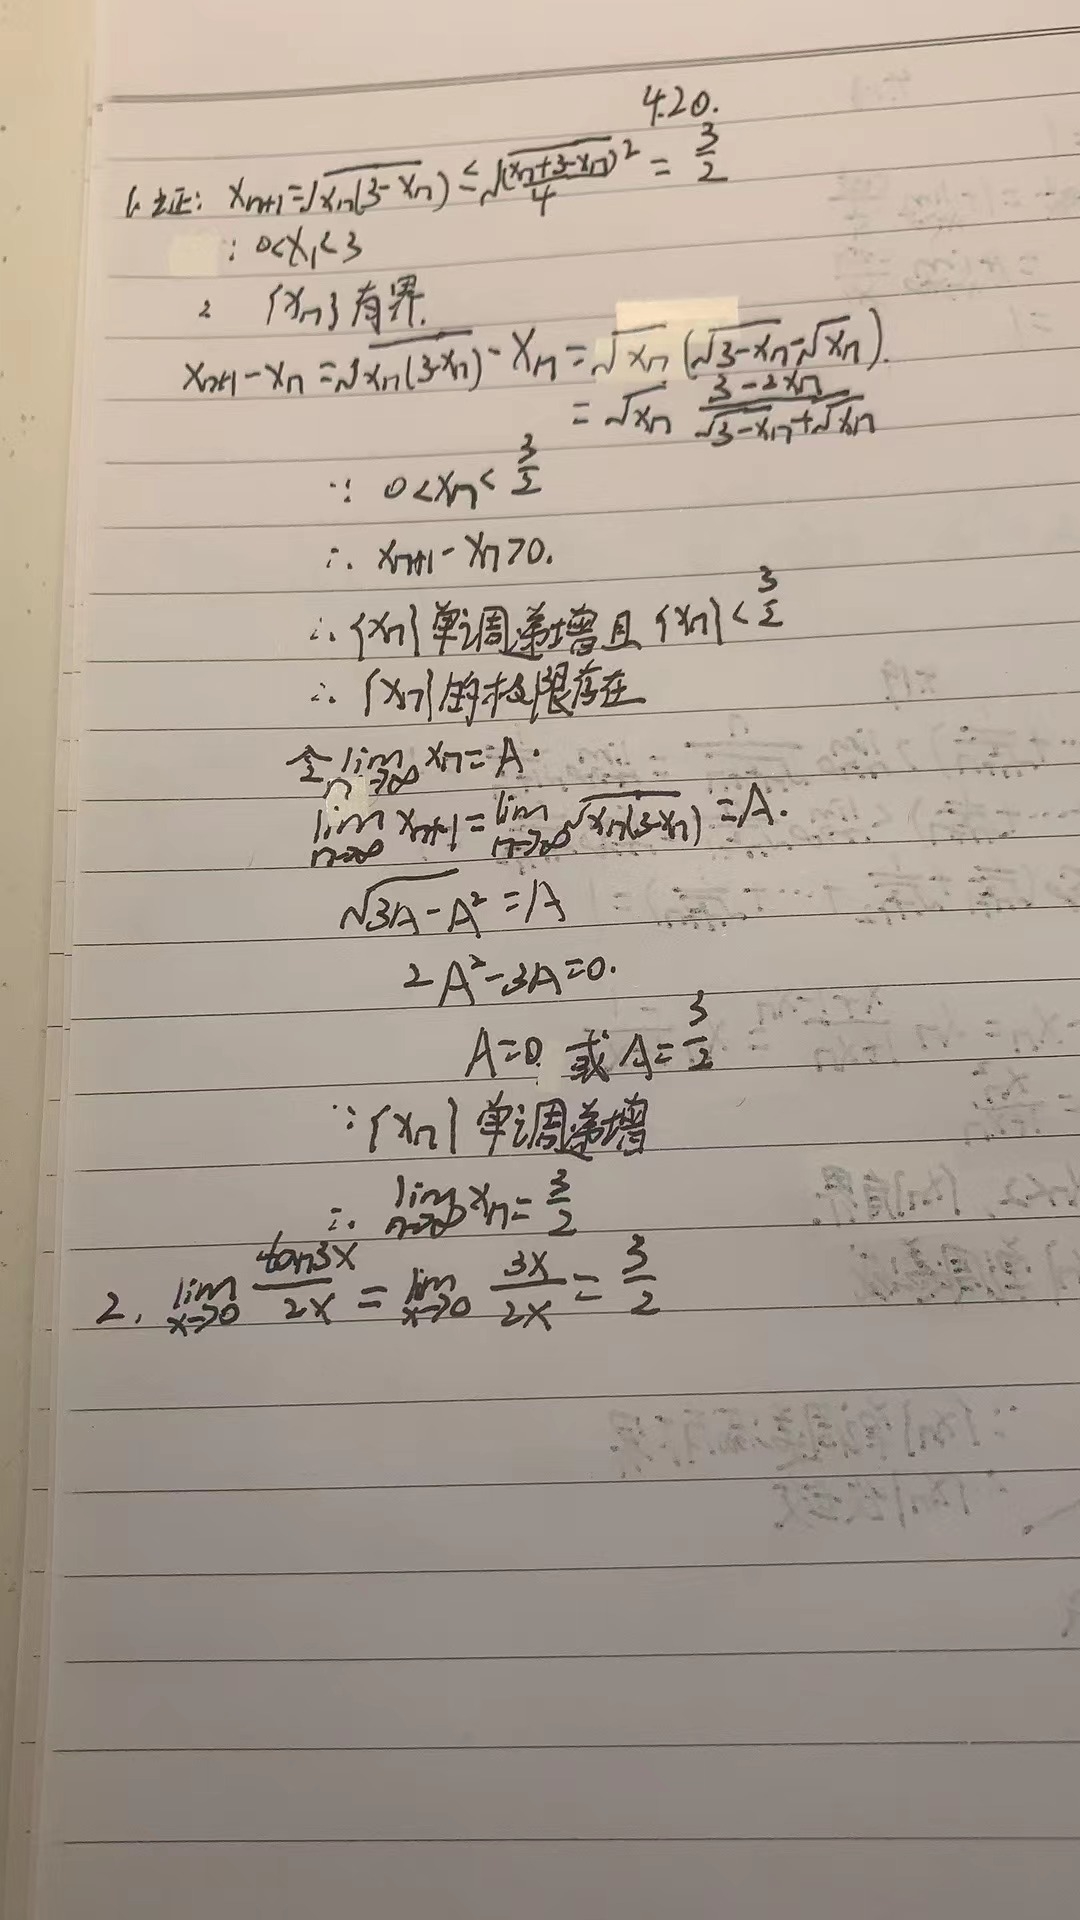 4.20.
1. 证: xₙ₊₁=√(xₙ(3-xₙ)) ≤ √((xₙ+3-xₙ)²/4) = 3/2
∵ 0<x₁<3
∴ {xₙ}有界.
xₙ₊₁-xₙ=√(xₙ(3-xₙ))-xₙ=√xₙ(√(3-xₙ)-√xₙ).
=√xₙ (3-2xₙ)/(√(3-xₙ)+√xₙ)
∵ 0<xₙ<3/2
∴ xₙ₊₁-xₙ>0.
∴ {xₙ}单调递增且{xₙ}<3/2
∴ {xₙ}的极限存在
令 lim n→∞ xₙ=A.
lim n→∞ xₙ₊₁=lim n→∞ √(xₙ(3-xₙ))=A.
√(3A-A²)=A
2A²-3A=0.
A=0 或 A=3/2
∵{xₙ}单调递增
∴ lim n→∞ xₙ=3/2
2. lim x→0 tan3x/2x = lim x→0 3x/2x = 3/2